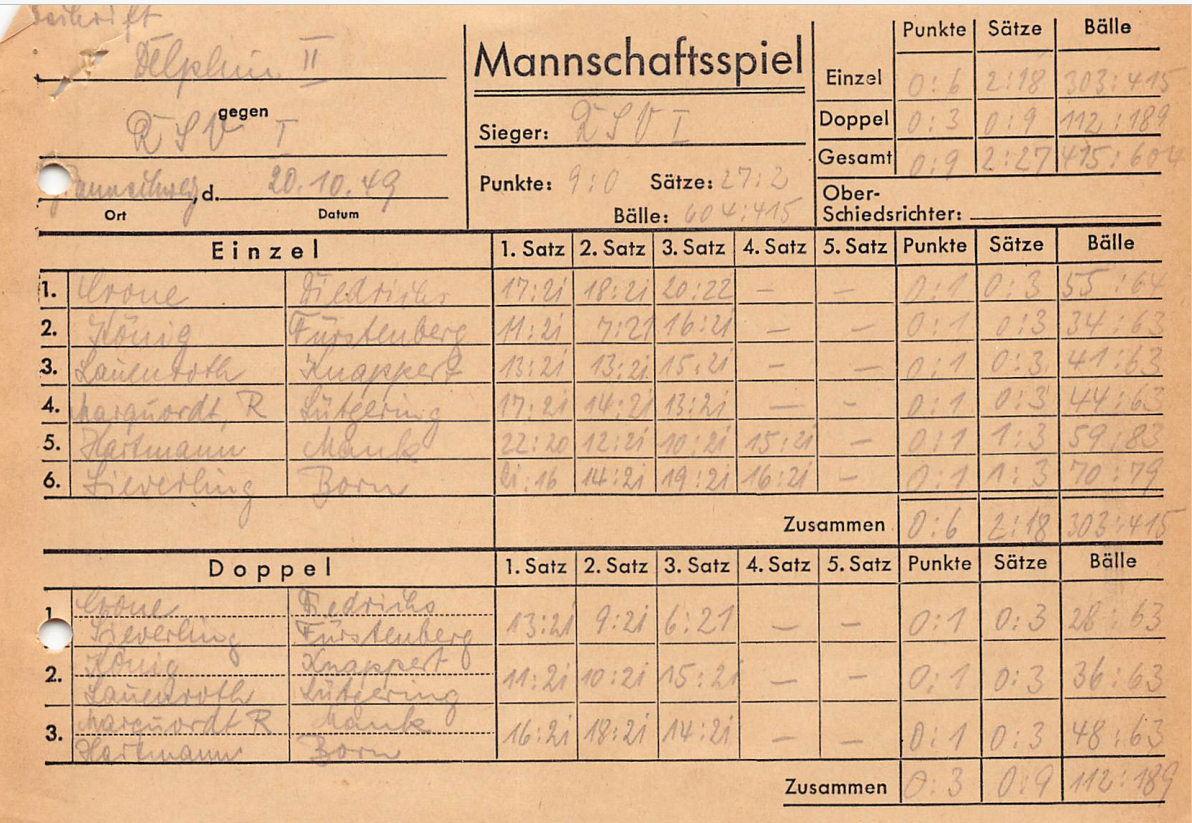 Delphin II
gegen
RSV I
d. 20.10.49
Ort Datum
Mannschaftsspiel
Sieger: RSV I
Punkte: 9:0 Sätze: 27:2
Bälle: 604:415
Punkte Sätze Bälle
Einzel 0:6 2:18 303:415
Doppel 0:3 0:9 112:189
Gesamt 0:9 2:27 415:604
Ober-
Schiedsrichter:
Einzel 1. Satz 2. Satz 3. Satz 4. Satz 5. Satz Punkte Sätze Bälle
1. Crone Diedrichs 17:21 18:21 20:22 — — 0:1 0:3 55:64
2. König Fürstenberg 11:21 7:21 16:21 — — 0:1 0:3 34:63
3. Lauenroth Knappert 13:21 13:21 15:21 — — 0:1 0:3 41:63
4. Marquordt, R Lütgering 17:21 14:21 13:21 — — 0:1 0:3 44:63
5. Hartmann Mank 22:20 12:21 10:21 15:21 — 0:1 1:3 59:83
6. Sieverling Born 21:16 14:21 19:21 16:21 — 0:1 1:3 70:79
Zusammen 0:6 2:18 303:415
Doppel 1. Satz 2. Satz 3. Satz 4. Satz 5. Satz Punkte Sätze Bälle
1. Crone Diedrichs
Sieverling Fürstenberg 13:21 9:21 6:21 — — 0:1 0:3 28:63
2. König Knappert
Lauenroth Lütgering 11:21 10:21 15:21 — — 0:1 0:3 36:63
3. Marquordt R Mank
Hartmann Born 16:21 18:21 14:21 — — 0:1 0:3 48:63
Zusammen 0:3 0:9 112:189